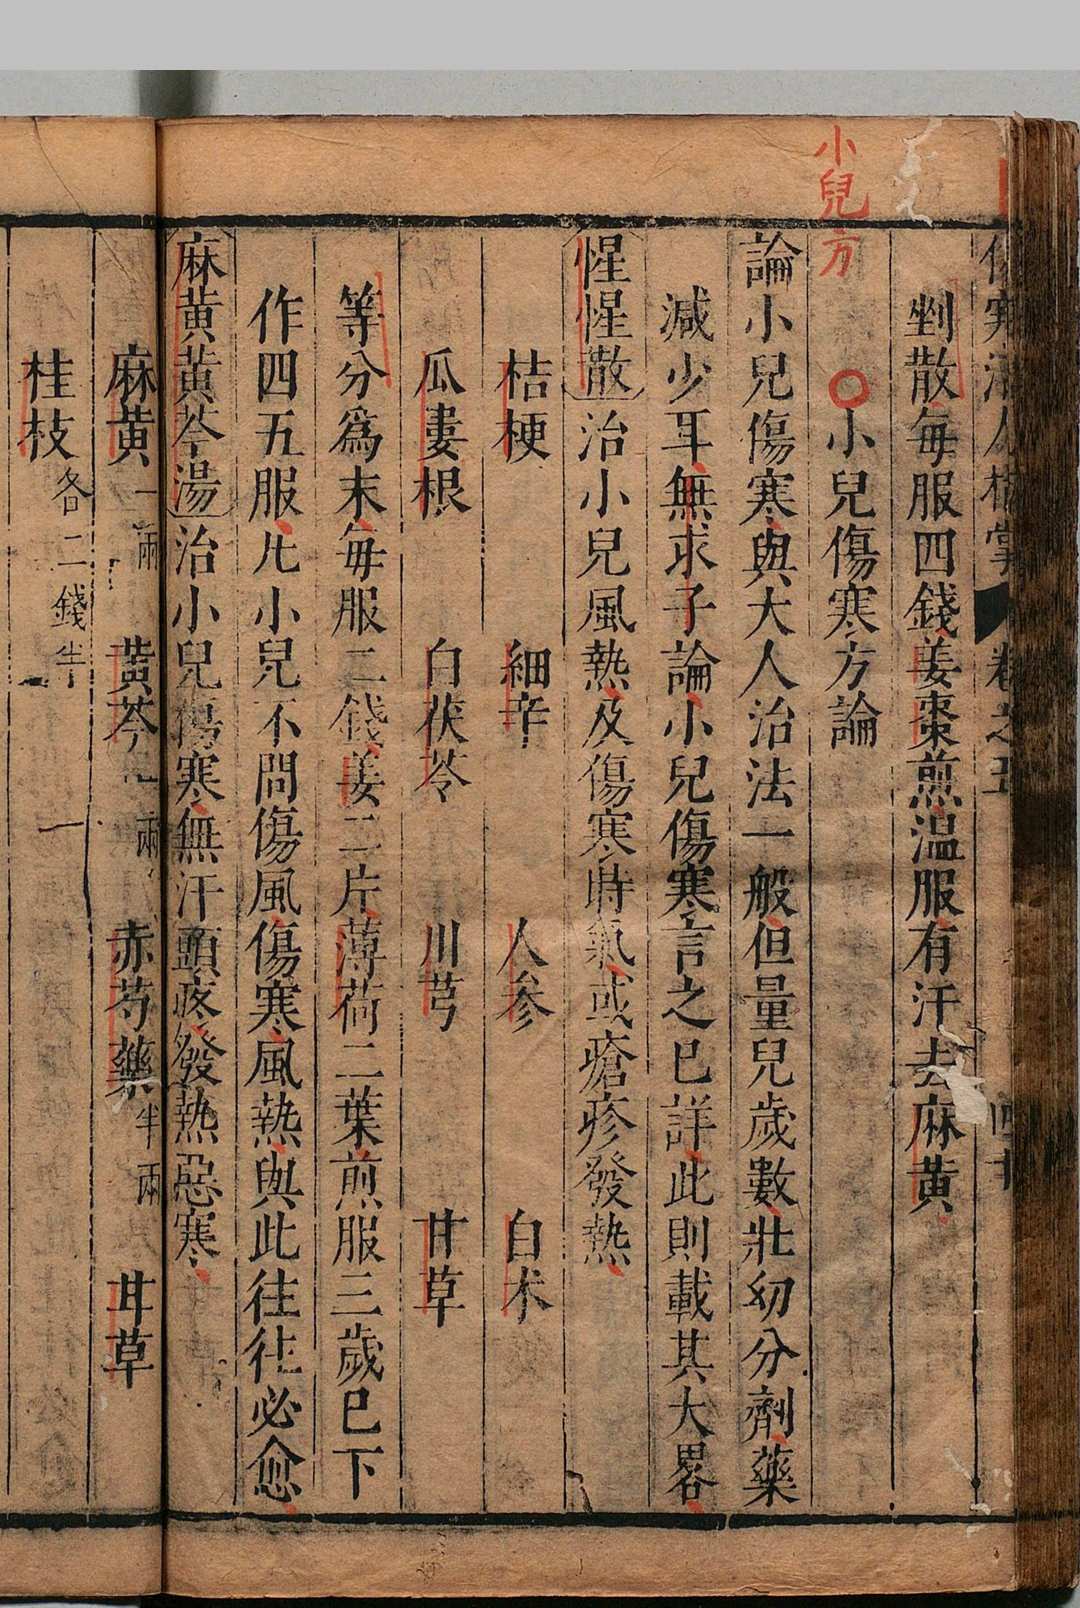 小兒方
剉散每服四錢姜棗煎溫服有汗去麻黃
○小兒傷寒方論
論小兒傷寒與大人治法一般但量兒歲數壯幼分劑藥
減少耳無求子論小兒傷寒言之已詳此則載其大畧
惺惺散治小兒風熱及傷寒時氣或瘡疹發熱
桔梗 細辛 人參 白朮
瓜蔞根 白茯苓 川芎 甘草
等分爲末每服二錢姜二片薄荷二葉煎服三歲已下
作四五服凡小兒不問傷風傷寒風熱與此往往必愈
麻黃黃芩湯治小兒傷寒無汗頭疼發熱惡寒
麻黃一兩 黃芩 赤芍藥半兩 甘草
桂枝各二錢半